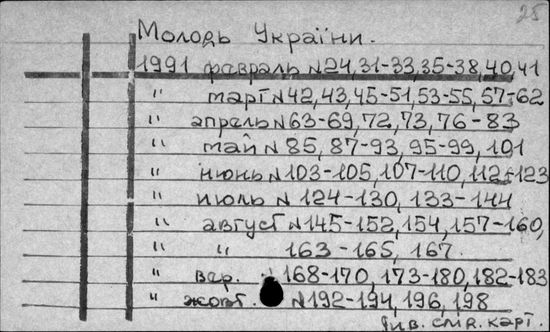 25
Молодь України.
1991 февраль №24,31-33,35-38,40,41
" март №42,43,45-51,53-55,57-62
" апрель №63-69,72,73,76-83
" май № 85,87-93,95-99,101
" июнь №103-105,107-110,112-123
" июль № 124-130, 133-144
" август №145-152,154,157-160,
" " 163-165, 167.
" вер. 168-170, 173-180, 182-183
" жовт. №192-194, 196, 198
див. слд. карт.